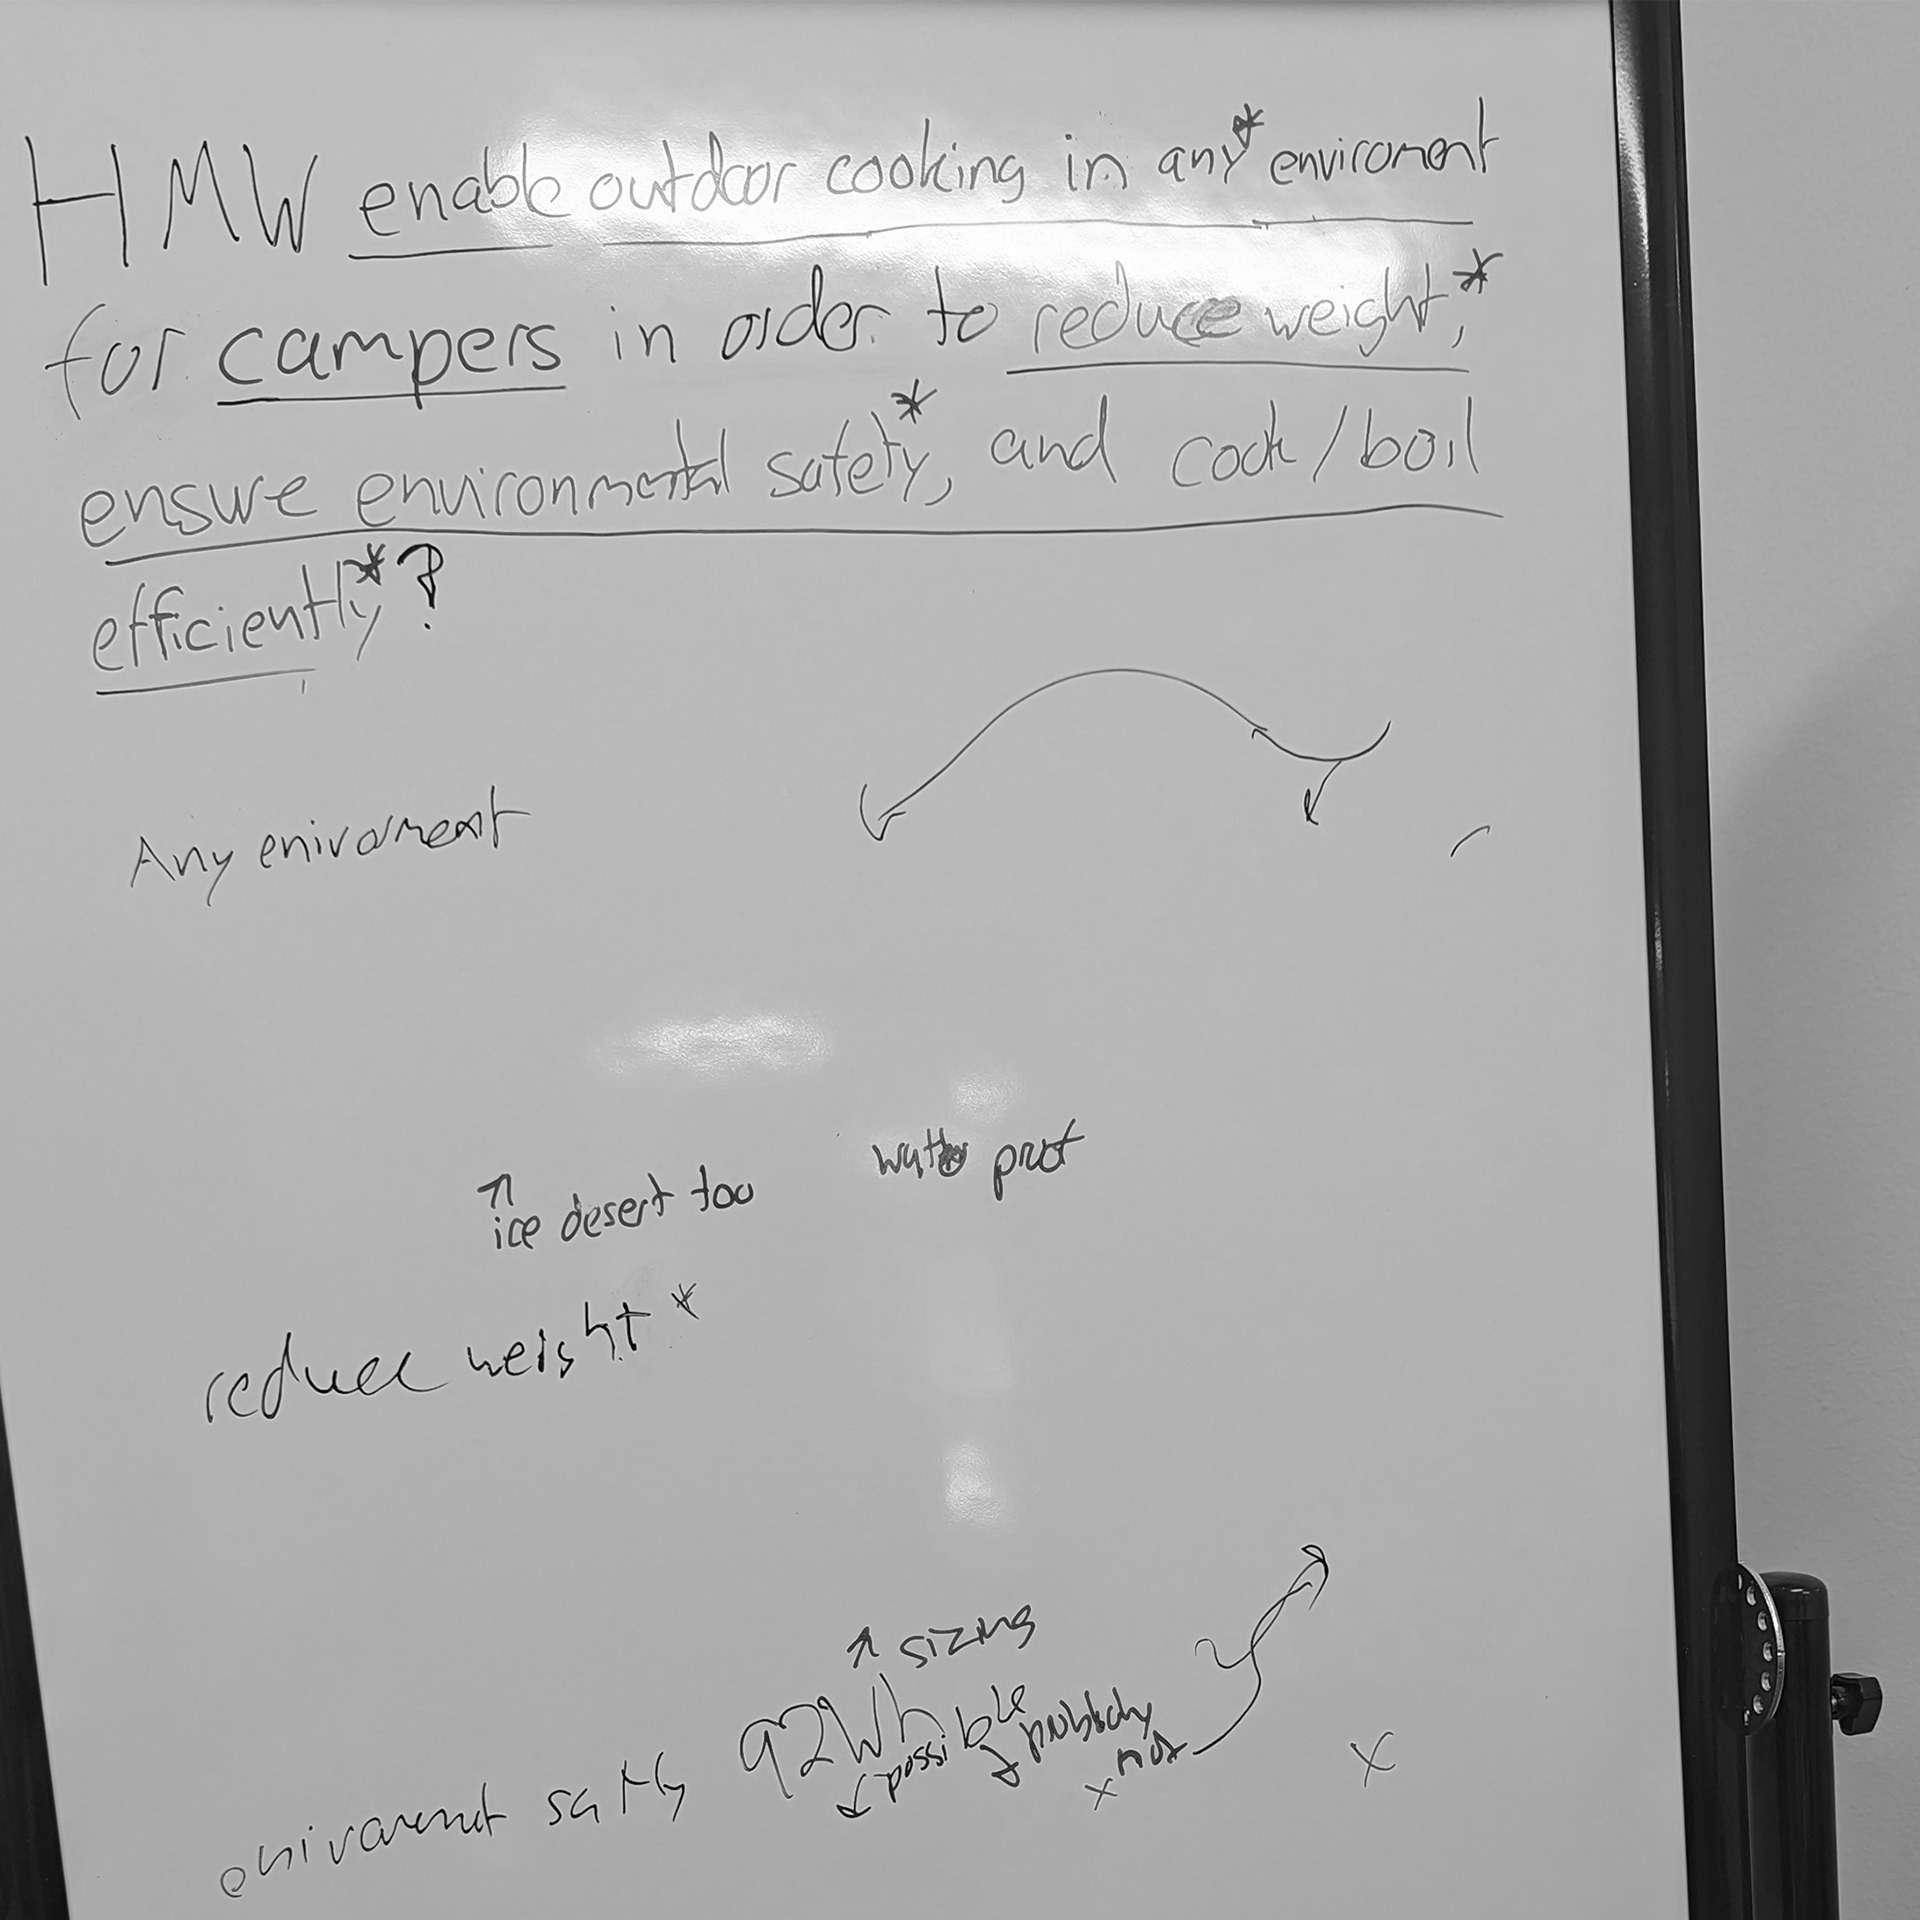 HMW enable outdoor cooking in any* enviroment
for campers in order to reduce weight,*
ensure environmental safety*, and cook/boil
efficiently*?
Any enivorment
ice desert too
reduce weight *
sizing
92Wh possible probably
not
enivorment safty